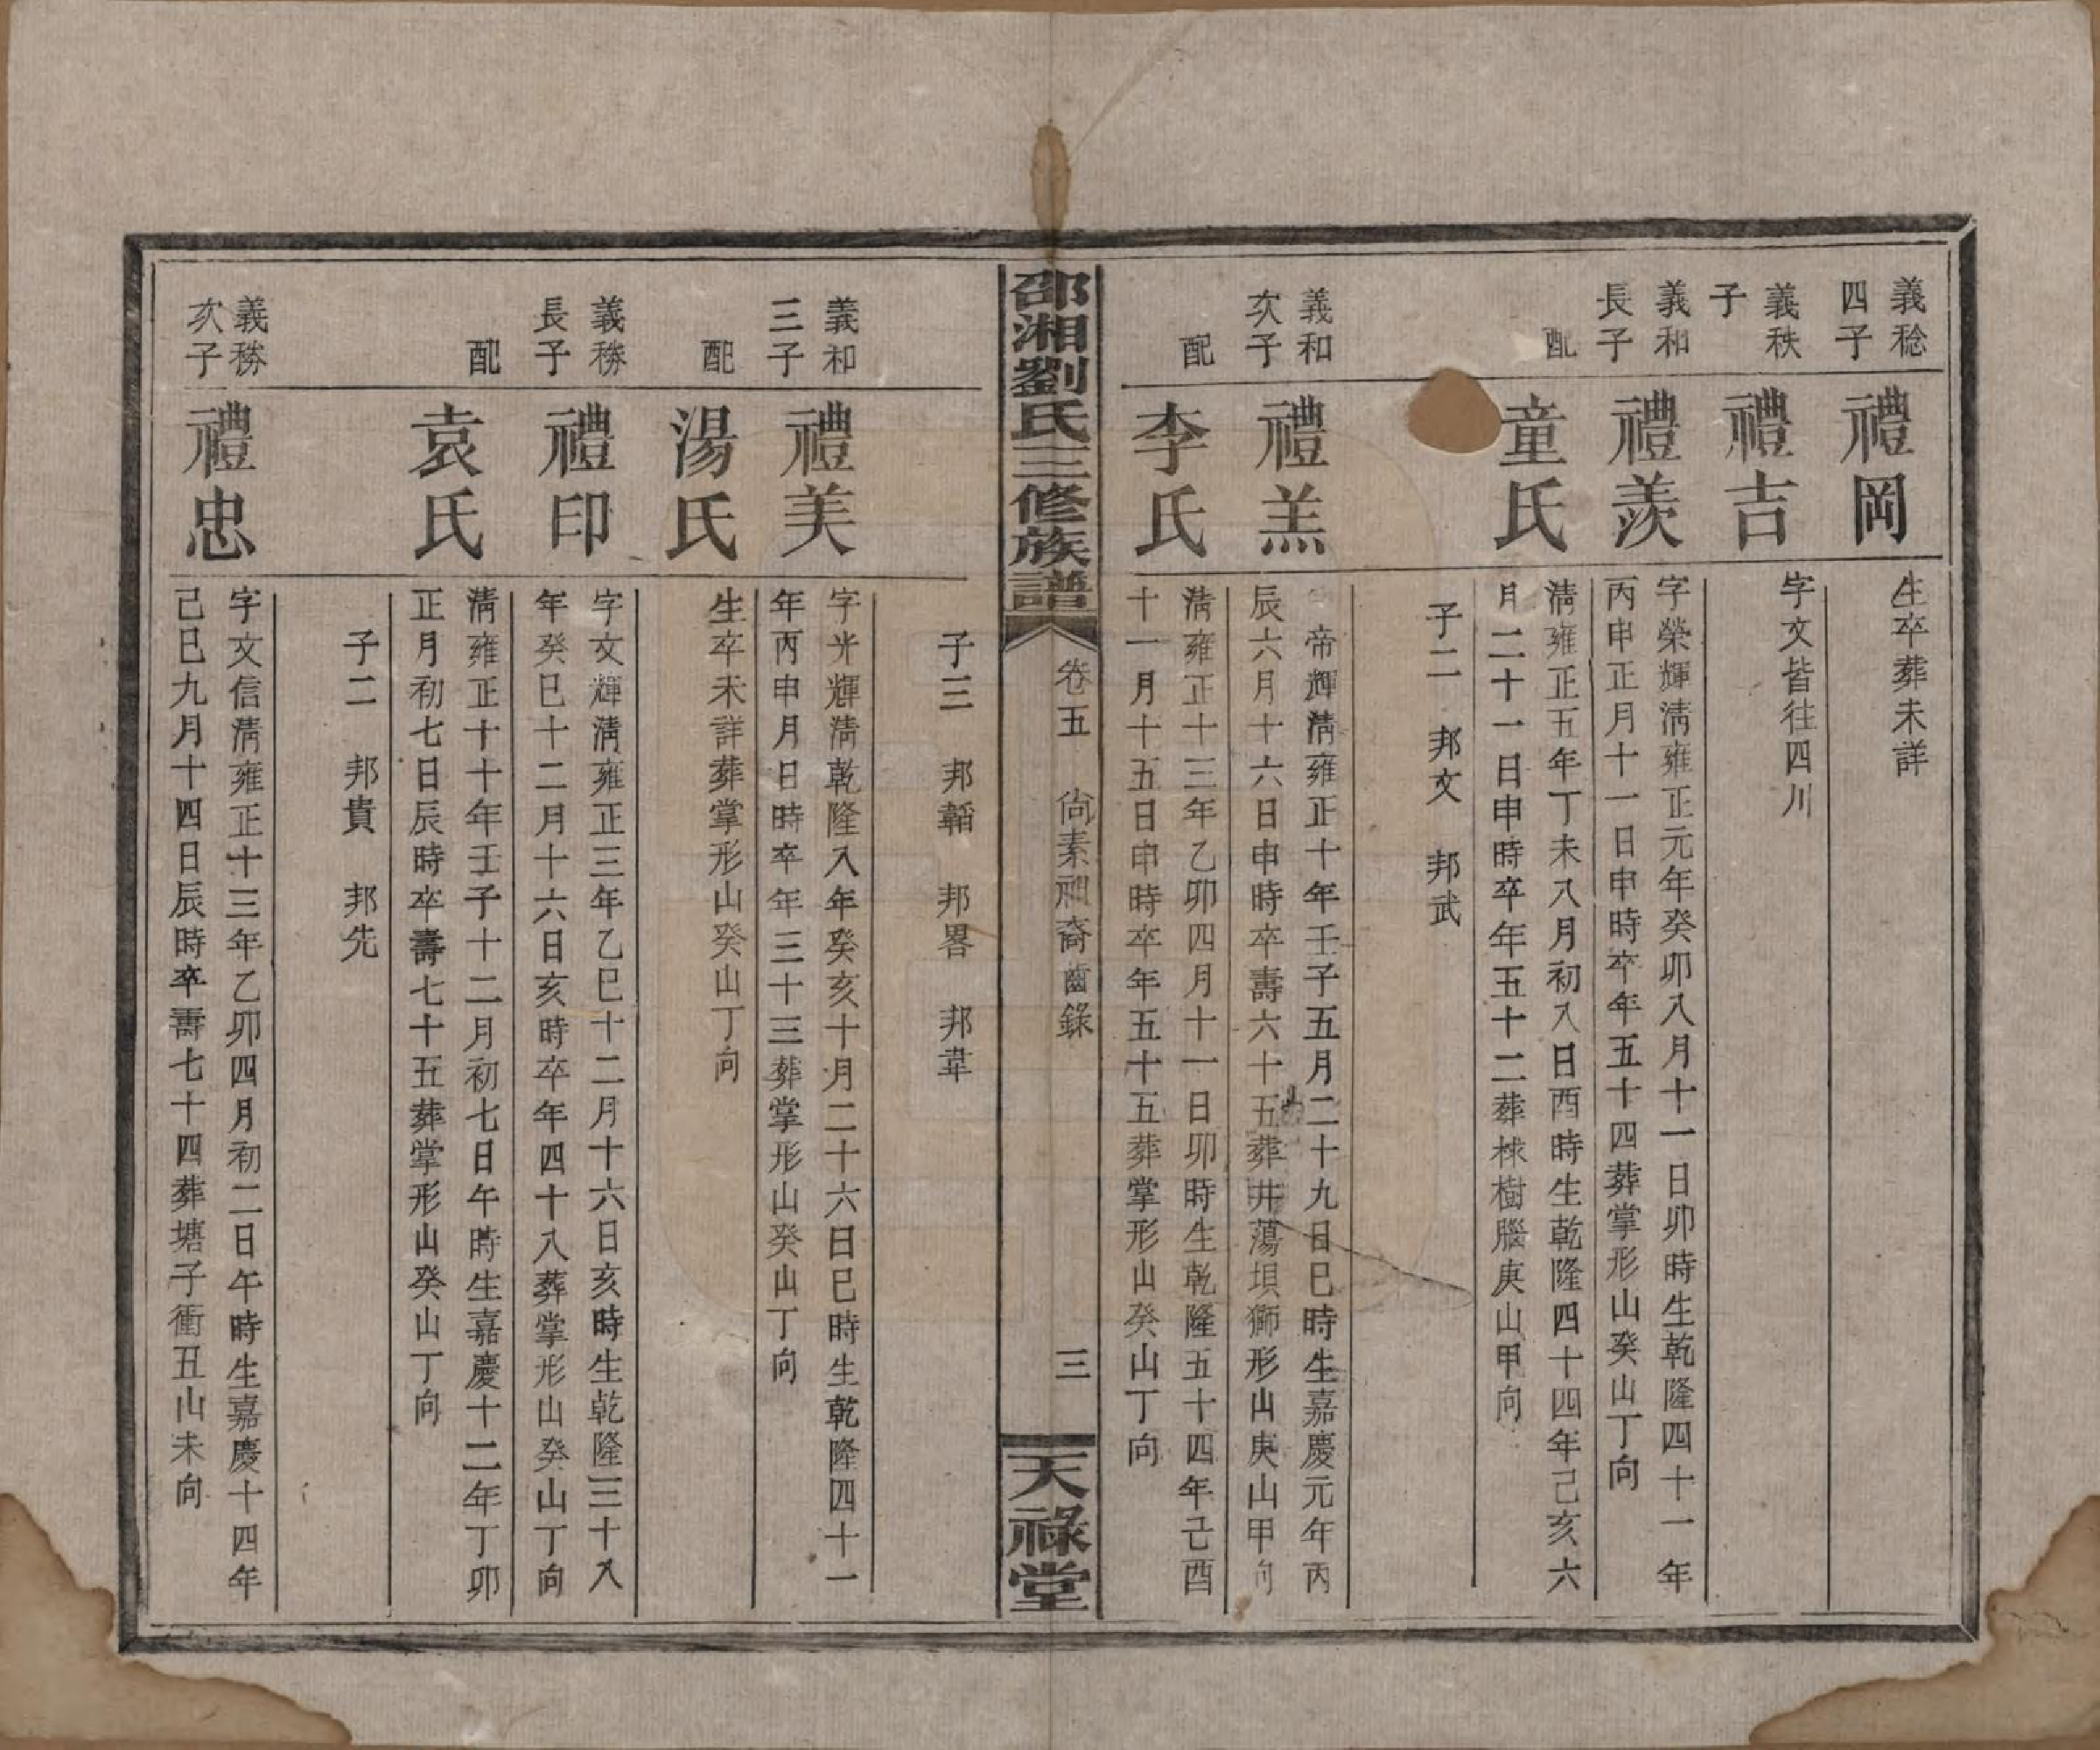 義稔
四子
禮岡
生卒葬未詳
義秩
子
禮吉
字文皆往四川
義和
長子
禮羨
字榮輝淸雍正元年癸卯八月十一日卯時生乾隆四十一年
丙申正月十一日申時卒年五十四葬掌形山癸山丁向
配
童氏
淸雍正五年丁未八月初八日酉時生乾隆四十四年己亥六
月二十一日申時卒年五十二葬梂樹腦庚山甲向
子二 邦文 邦武
義和
次子
禮羔
帝輝淸雍正十年壬子五月二十九日巳時生嘉慶元年丙
辰六月十六日申時卒壽六十五葬井蕩垻獅形山庚山甲向
配
李氏
淸雍正十三年乙卯四月十一日卯時生乾隆五十四年己酉
十一月十五日申時卒年五十五葬掌形山癸山丁向
邵湘劉氏三修族譜
卷五 尙素祖裔齒錄
三
天祿堂
子三 邦韜 邦畧 邦韋
義和
三子
禮美
字光輝淸乾隆八年癸亥十月二十六日巳時生乾隆四十一
年丙申月日時卒年三十三葬掌形山癸山丁向
配
湯氏
生卒未詳葬掌形山癸山丁向
義務
長子
禮印
字文輝淸雍正三年乙巳十二月十六日亥時生乾隆三十八
年癸巳十二月十六日亥時卒年四十八葬掌形山癸山丁向
配
袁氏
淸雍正十十年壬子十二月初七日午時生嘉慶十二年丁卯
正月初七日辰時卒壽七十五葬掌形山癸山丁向
子二 邦貴 邦先
義務
次子
禮忠
字文信淸雍正十三年乙卯四月初二日午時生嘉慶十四年
己巳九月十四日辰時卒壽七十四葬塘子衝丑山未向